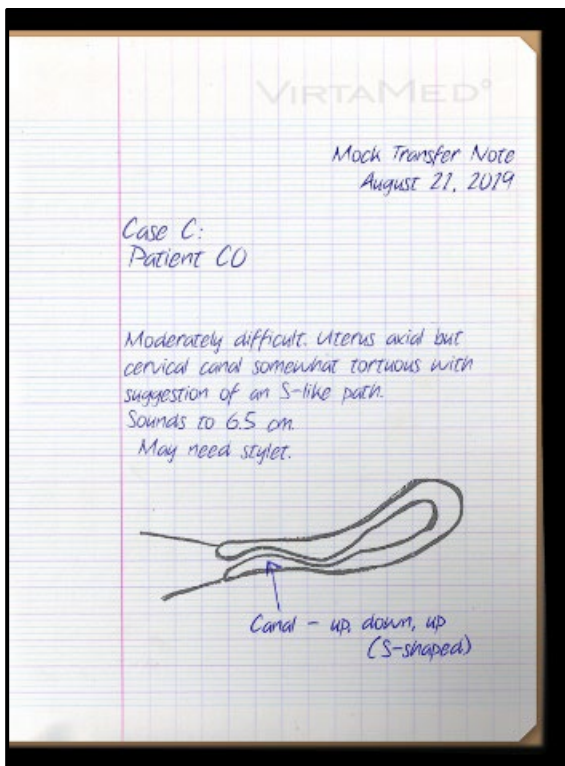 VIRTAMED°
Mock Transfer Note
August 21, 2019
Case C:
Patient CO
Moderately difficult. Uterus axial but
cervical canal somewhat tortuous with
suggestion of an S-like path.
Sounds to 6.5 cm.
May need stylet.
Canal - up, down, up
(S-shaped)